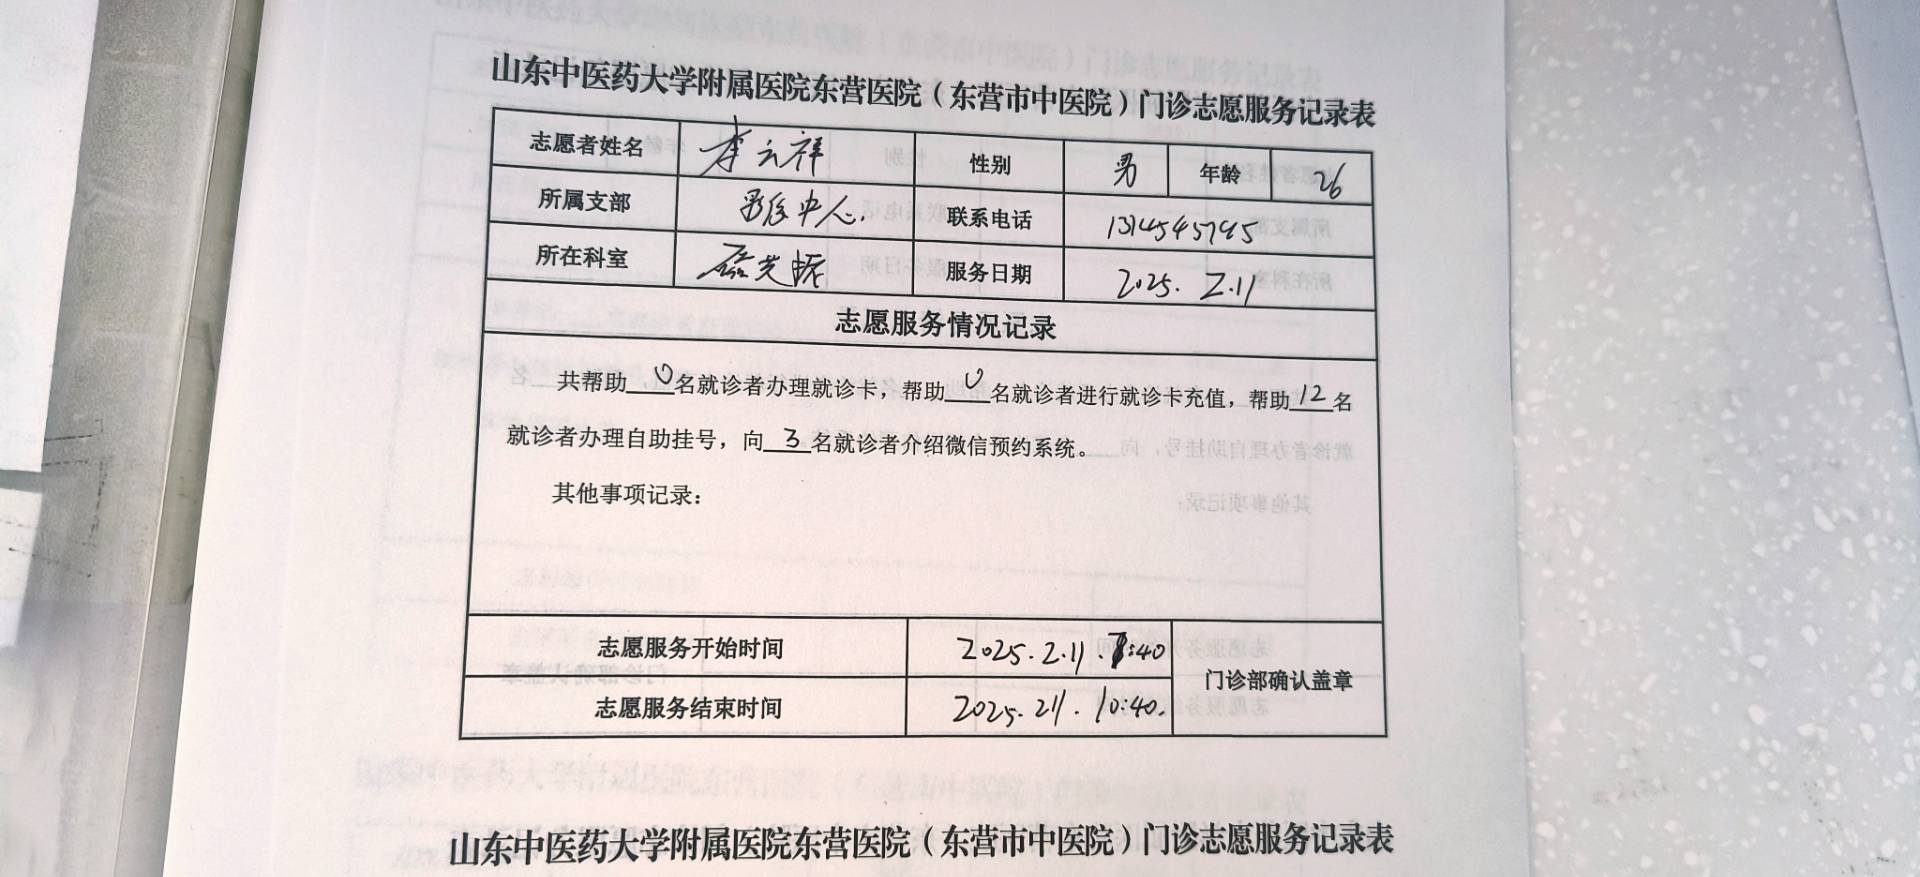 山东中医药大学附属医院东营医院（东营市中医院）门诊志愿服务记录表
志愿者姓名 李云祥 性别 男 年龄 26
所属支部 联系电话
所在科室 磁共振 服务日期 2025. 2.11
志愿服务情况记录
共帮助0名就诊者办理就诊卡，帮助0名就诊者进行就诊卡充值，帮助12名
就诊者办理自助挂号，向3名就诊者介绍微信预约系统。
其他事项记录：
志愿服务开始时间 2025.2.11.
志愿服务结束时间 2025.211.10:40.
门诊部确认盖章
山东中医药大学附属医院东营医院（东营市中医院）门诊志愿服务记录表